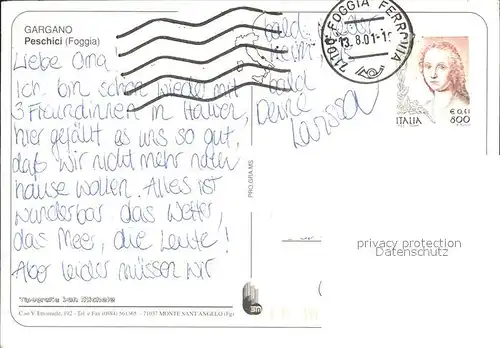 GARGANO
Peschici (Foggia)
Liebe Oma!
Ich bin schon wieder mit
3 Freundinnen in Italien,
hier gefällt es uns so gut,
daß wir nicht mehr nach
hause wollen. Alles ist
wunderbar das Wetter,
das Meer, die Leute!
Aber leider müssen wir
bald wieder
heim
bald
Deine
Larissa
71100 FOGGIA FERROVIA
13.8.01-1
€ 0,41
ITALIA 800
PRO.GRA.MS
privacy protection
Datenschutz
Tipografia San Michele
C.so V. Emanuele, 192 - Tel. e Fax (0884) 561165 - 71037 MONTE SANT'ANGELO (Fg)